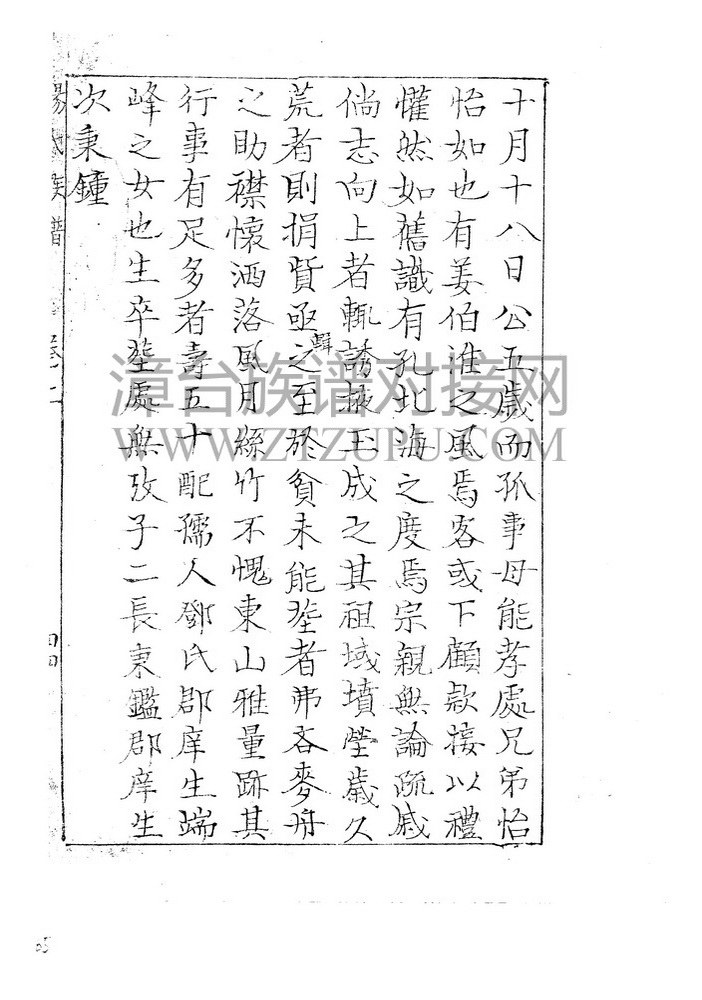 十月十八日公五歲而孤事母能孝處兄弟怡
怡如也有姜伯淮之風焉客或下顧款接以禮
懽然如舊識有孔北海之度焉宗親無論疏戚
倘志向上者輒誘掖玉成之其祖域墳塋歲久
荒者則捐貲亟輯之至於貧未能塟者弗吝麥舟
之助襟懷洒落風月絲竹不愧東山雅量跡其
行事有足多者壽五十配孺人鄧氏郡庠生端
峰之女也生卒塟處無攷子二長秉鑑郡庠生
次秉鐘
楊氏族譜
漳台族谱对接网
WWW.ZTZUPU.COM